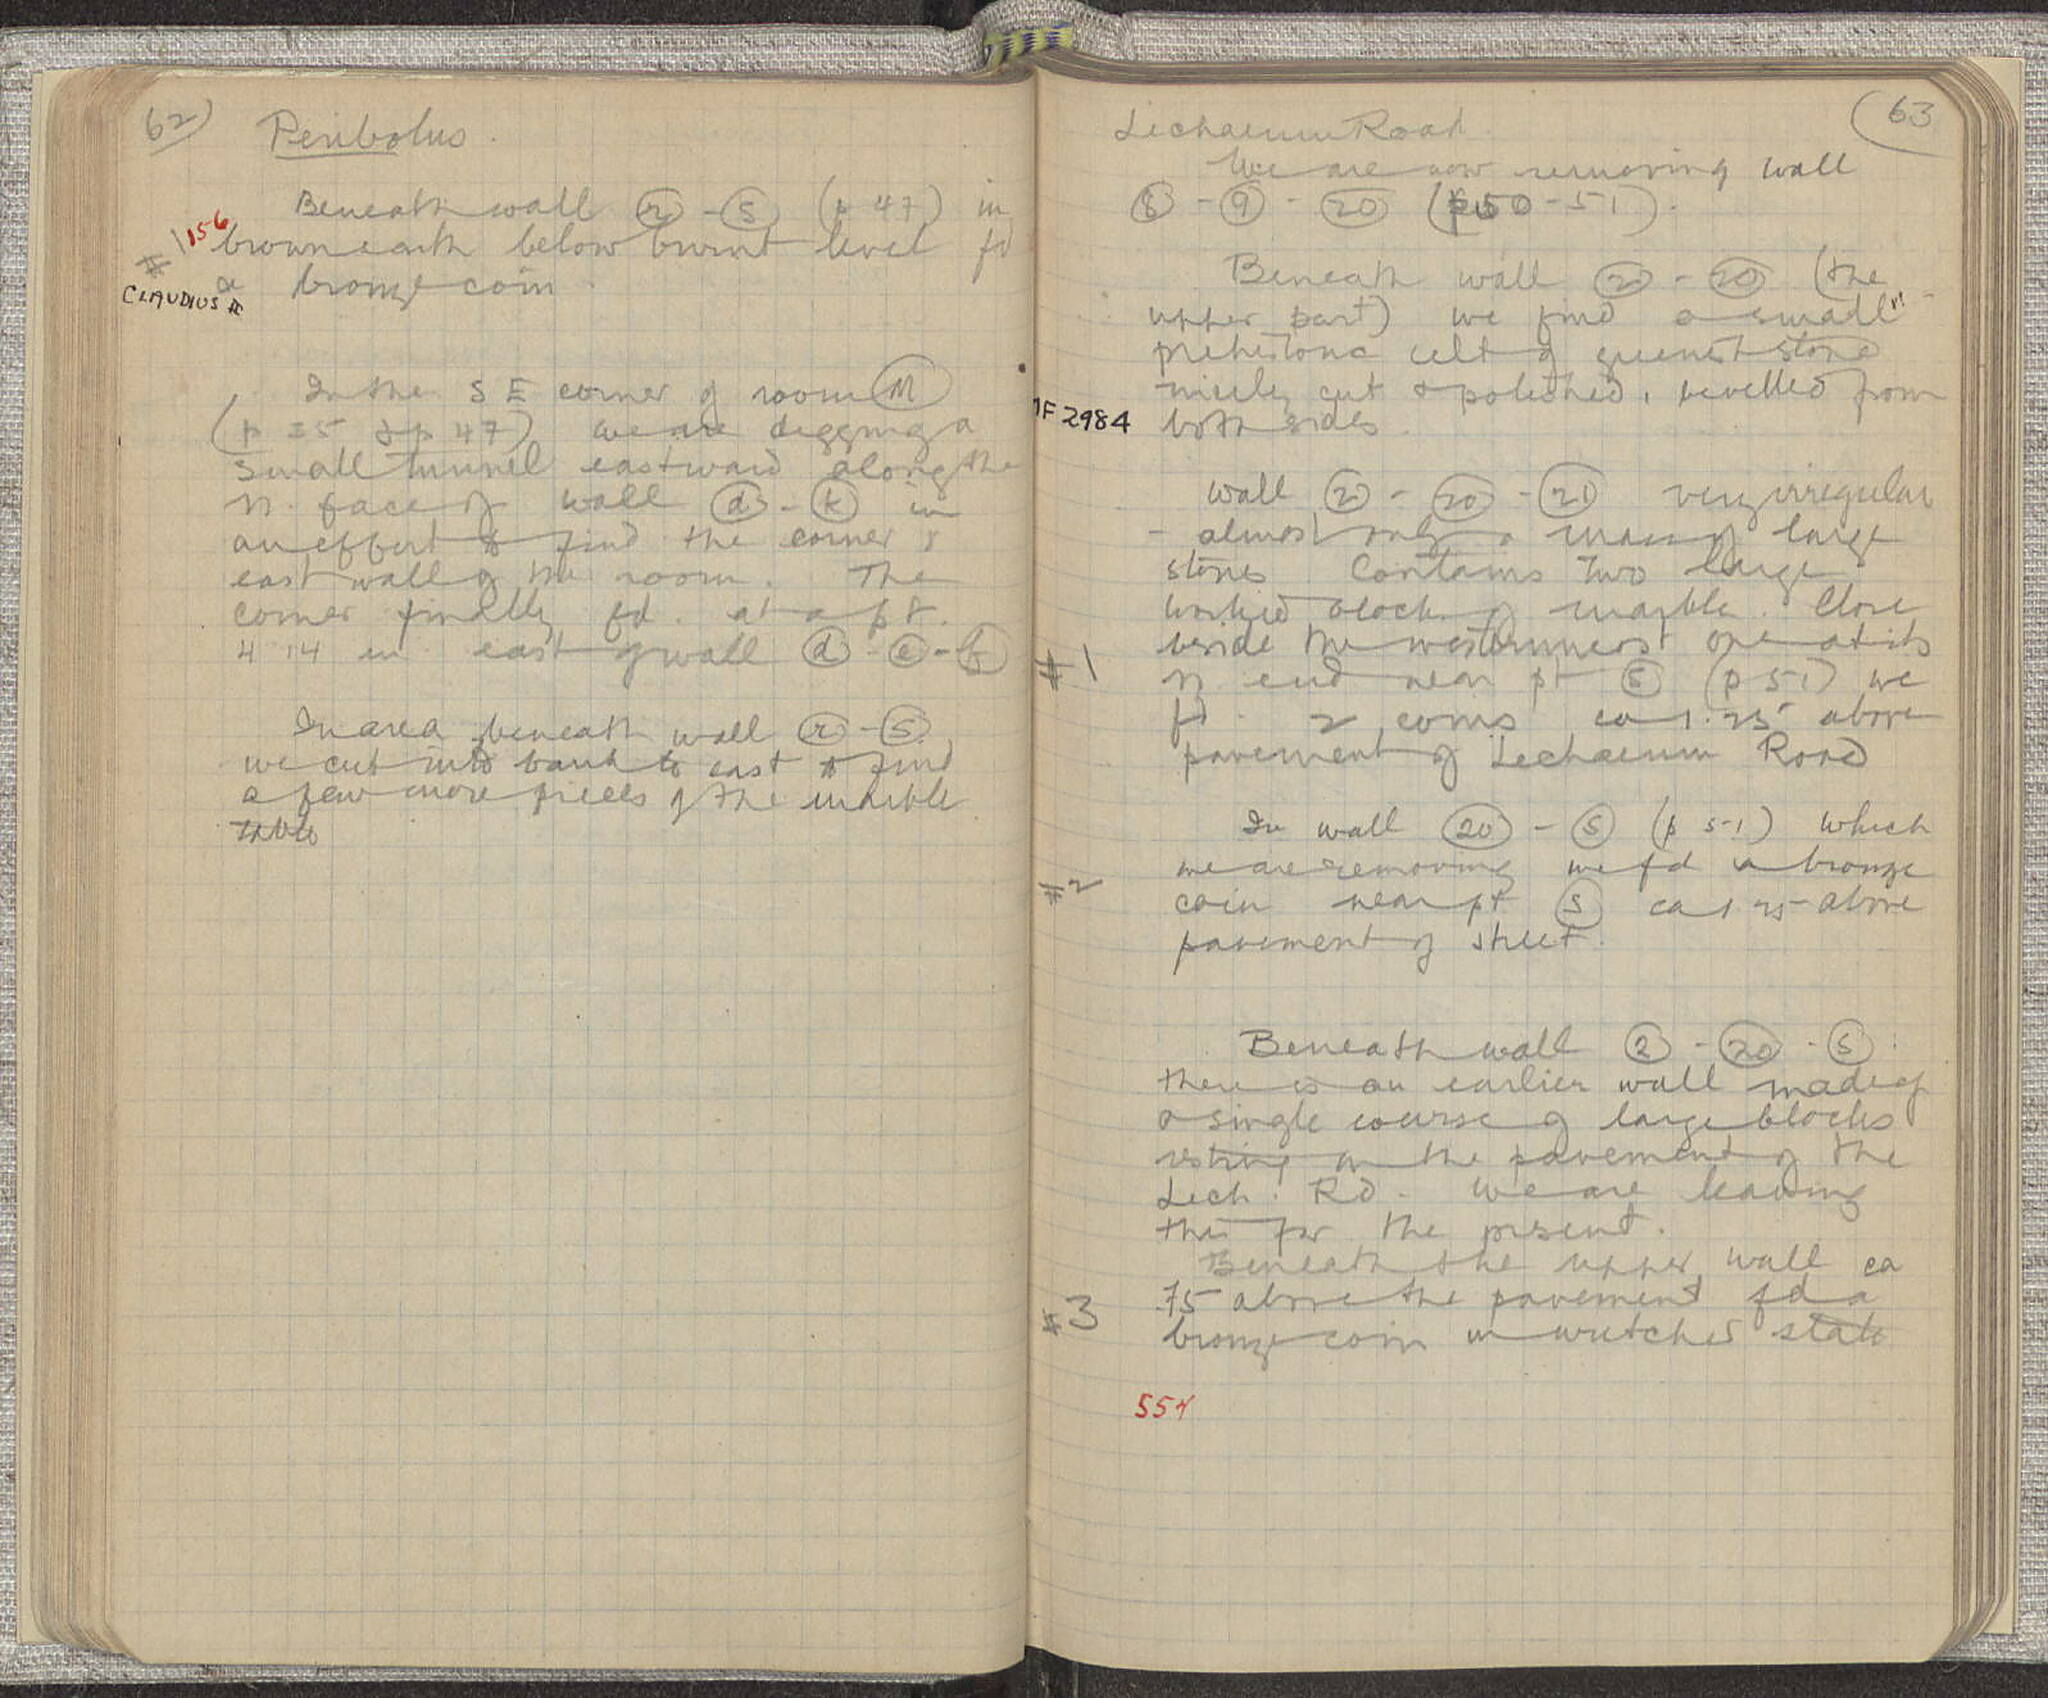 62)
Peribolus.
Beneath wall (r) - (s) (p 47) in
#1 156 brown earth below burnt level fd
a bronze coin.
CLAUDIUS II
In the S E corner of room (M)
(p 35 & p 47) we are digging a
small tunnel eastward along the
N. face of wall (d) - (k) in
an effort to find the corner &
east wall of the room. The
corner finally fd. at a pt.
4.14 m east of wall (d) - (e) - (f)
In area beneath wall (r) - (s)
we cut into bank to east to find
a few more pieces of the marble
table
(63
Lechaeum Road
We are now removing wall
(8) - (9) - (20) (p 50-51).
Beneath wall (20) - (20) (the
upper part) we find a small
prehistoric celt of greenish stone
nicely cut & polished, bevelled from
MF 2984 both sides.
Wall (2) - (20) - (21) very irregular
- almost only a mass of large
stones Contains two large
worked blocks of marble. Close
beside the westernmost one at its
#1 N. end near pt (5) (p 51) we
fd. 2 coins ca 1.25 above
pavement of Lechaeum Road
In wall (20) - (5) (p 51) which
we are removing we fd a bronze
#2 coin near pt (5) ca 1.25 above
pavement of street.
Beneath wall (2) - (20) - (5)
there is an earlier wall made of
a single course of large blocks
resting on the pavement of the
Lech. Rd. We are leaving
this for the present.
Beneath the upper wall ca
.75 above the pavement fd a
#3 bronze coin in wretched state